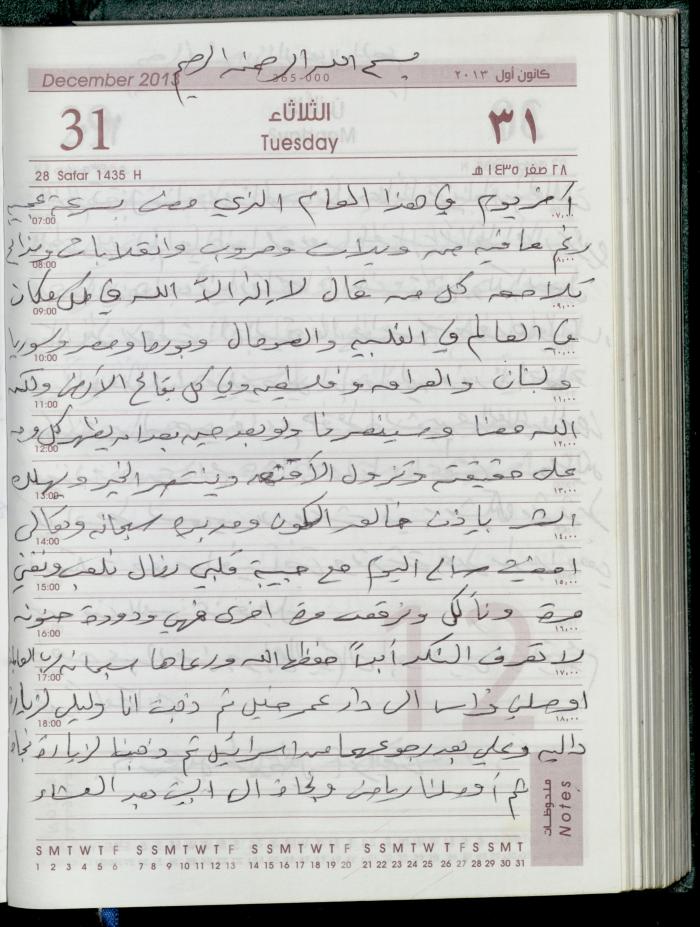 بسم الله الرحمن الرحيم
December 2013 365-000 كانون أول ٢٠١٣
31 الثلاثاء ٣١
Tuesday
28 Safar 1435 H ٢٨ صفر ١٤٣٥ هـ
آخر يوم في هذا العام الذي مضى بسرعة
07:00 ٠٧,٠٠
رغم ما فيه من ويلات وحروب وانقلابات
08:00 ٠٨,٠٠
تلاحقه كل من قال لا إله إلا الله في كل مكان
09:00 ٠٩,٠٠
في العالم في الفلبين والصومال وبورما ومصر وسوريا
10:00 ١٠,٠٠
ولبنان والعراق وفلسطين وفي كل بقاع الأرض ولكن
11:00 ١١,٠٠
الله معنا وسينصرنا ولو بعد حين بعد أن يظهر كل
12:00 ١٢,٠٠
على حقيقته وتزول الأقنعة وينتصر الخير ويهلك
13:00 ١٣,٠٠
الشر بإذن خالق الكون ومدبره سبحانه وتعالى
14:00 ١٤,٠٠
امضيت اليوم مع حبيبة قلبي نلعب
15:00 ١٥,٠٠
مرة ونأكل ونرقص مرة اخرى فهي ودودة حنونة
16:00 ١٦,٠٠
لا تعرف النكد أبداً حفظها الله ورعاها سبحانه رب
17:00 ١٧,٠٠
اوصلني فراس الى دار عمر ثم ذهبت انا وليلى لزيارة
18:00 ١٨,٠٠
داليه وعلي بعد رجوعهما من اسرائيل ثم ذهبنا لزيارة نجاة
ثم أوصلنا رياض ونجاة الى البيت بعد العشاء
ملحوظات
Notes
12
S M T W T F S S M T W T F S S M T W T F S S M T W T F S S M T
1 2 3 4 5 6 7 8 9 10 11 12 13 14 15 16 17 18 19 20 21 22 23 24 25 26 27 28 29 30 31